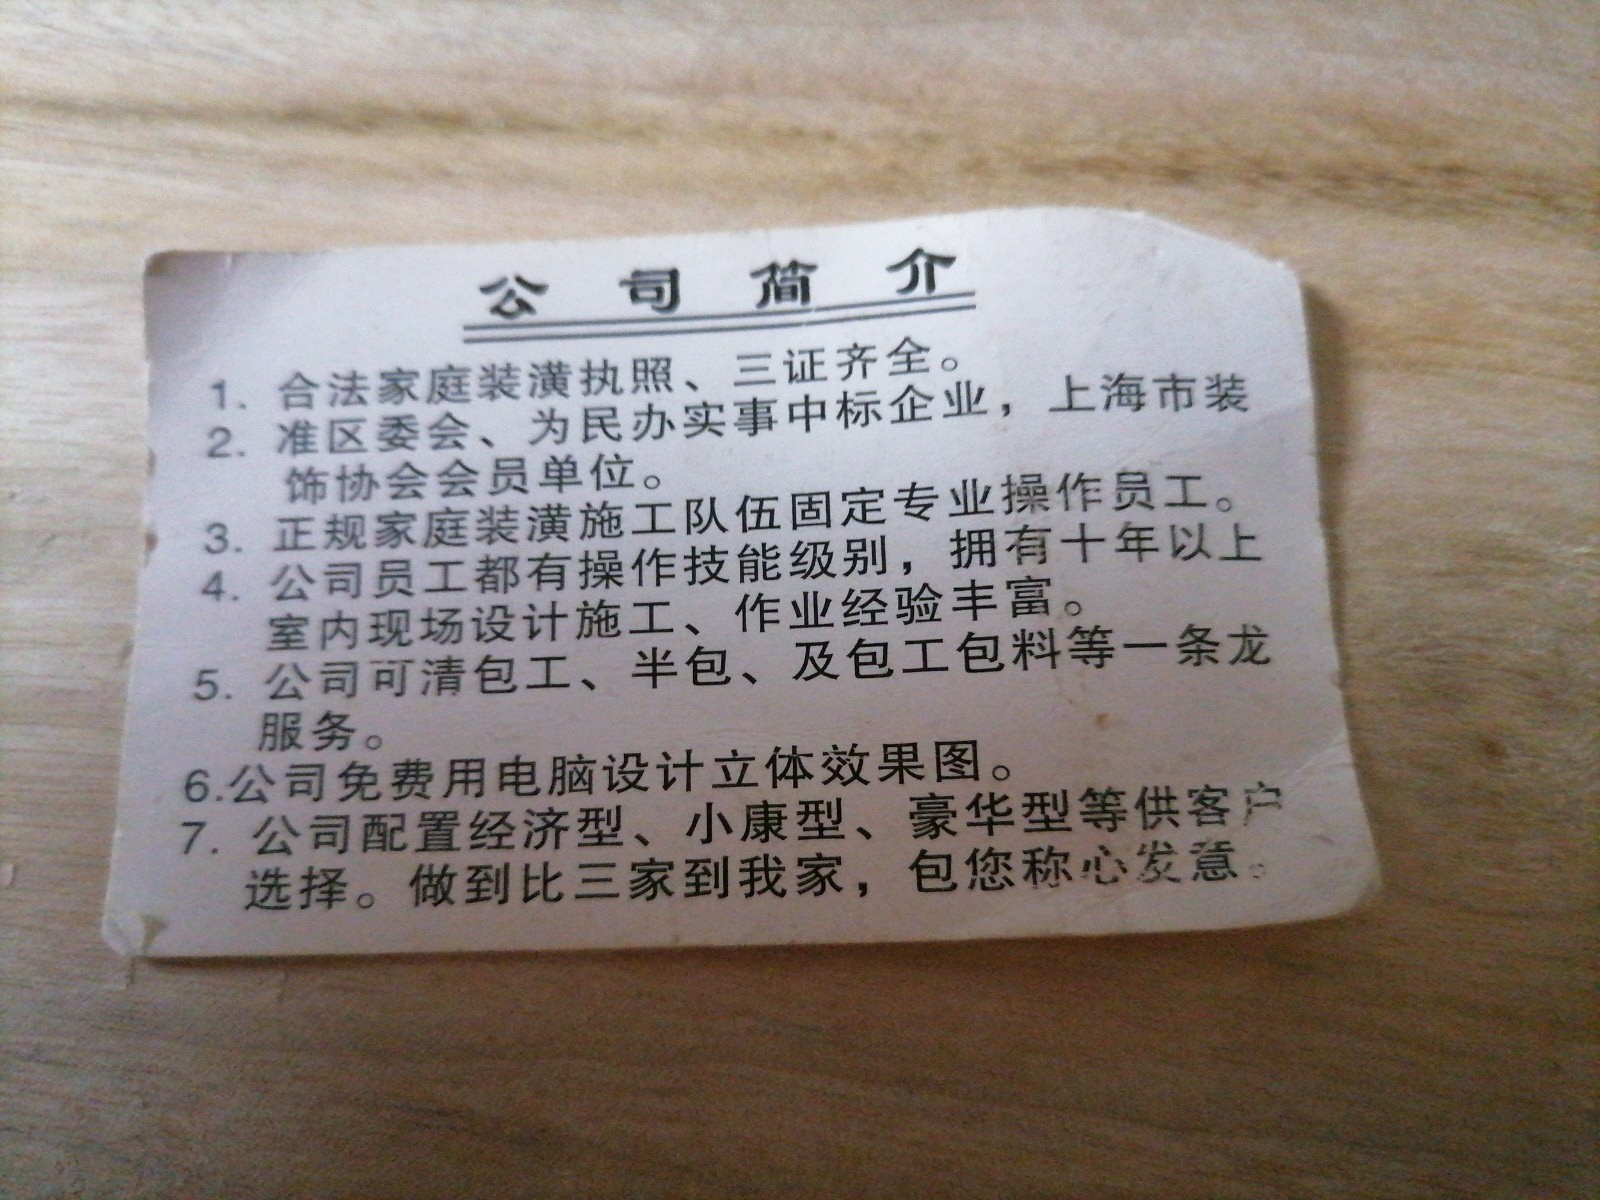 公司简介
1. 合法家庭装潢执照、三证齐全。
2. 准区委会、为民办实事中标企业，上海市装
饰协会会员单位。
3. 正规家庭装潢施工队伍固定专业操作员工。
4. 公司员工都有操作技能级别，拥有十年以上
室内现场设计施工、作业经验丰富。
5. 公司可清包工、半包、及包工包料等一条龙
服务。
6.公司免费用电脑设计立体效果图。
7. 公司配置经济型、小康型、豪华型等供客户
选择。做到比三家到我家，包您称心发意。